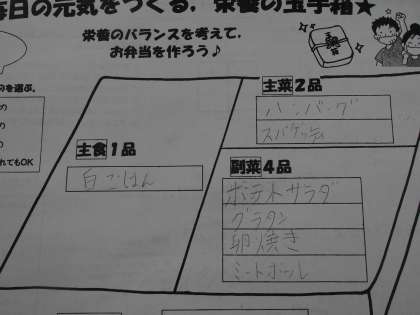 毎日の元気をつくる，栄養の玉手箱★
栄養のバランスを考えて，
お弁当を作ろう♪
を選ぶ。
の
の
の
れでもOK
主菜2品
ハンバーグ
スパゲッティ
主食1品
白ごはん
副菜4品
ポテトサラダ
グラタン
卵焼き
ミートボール